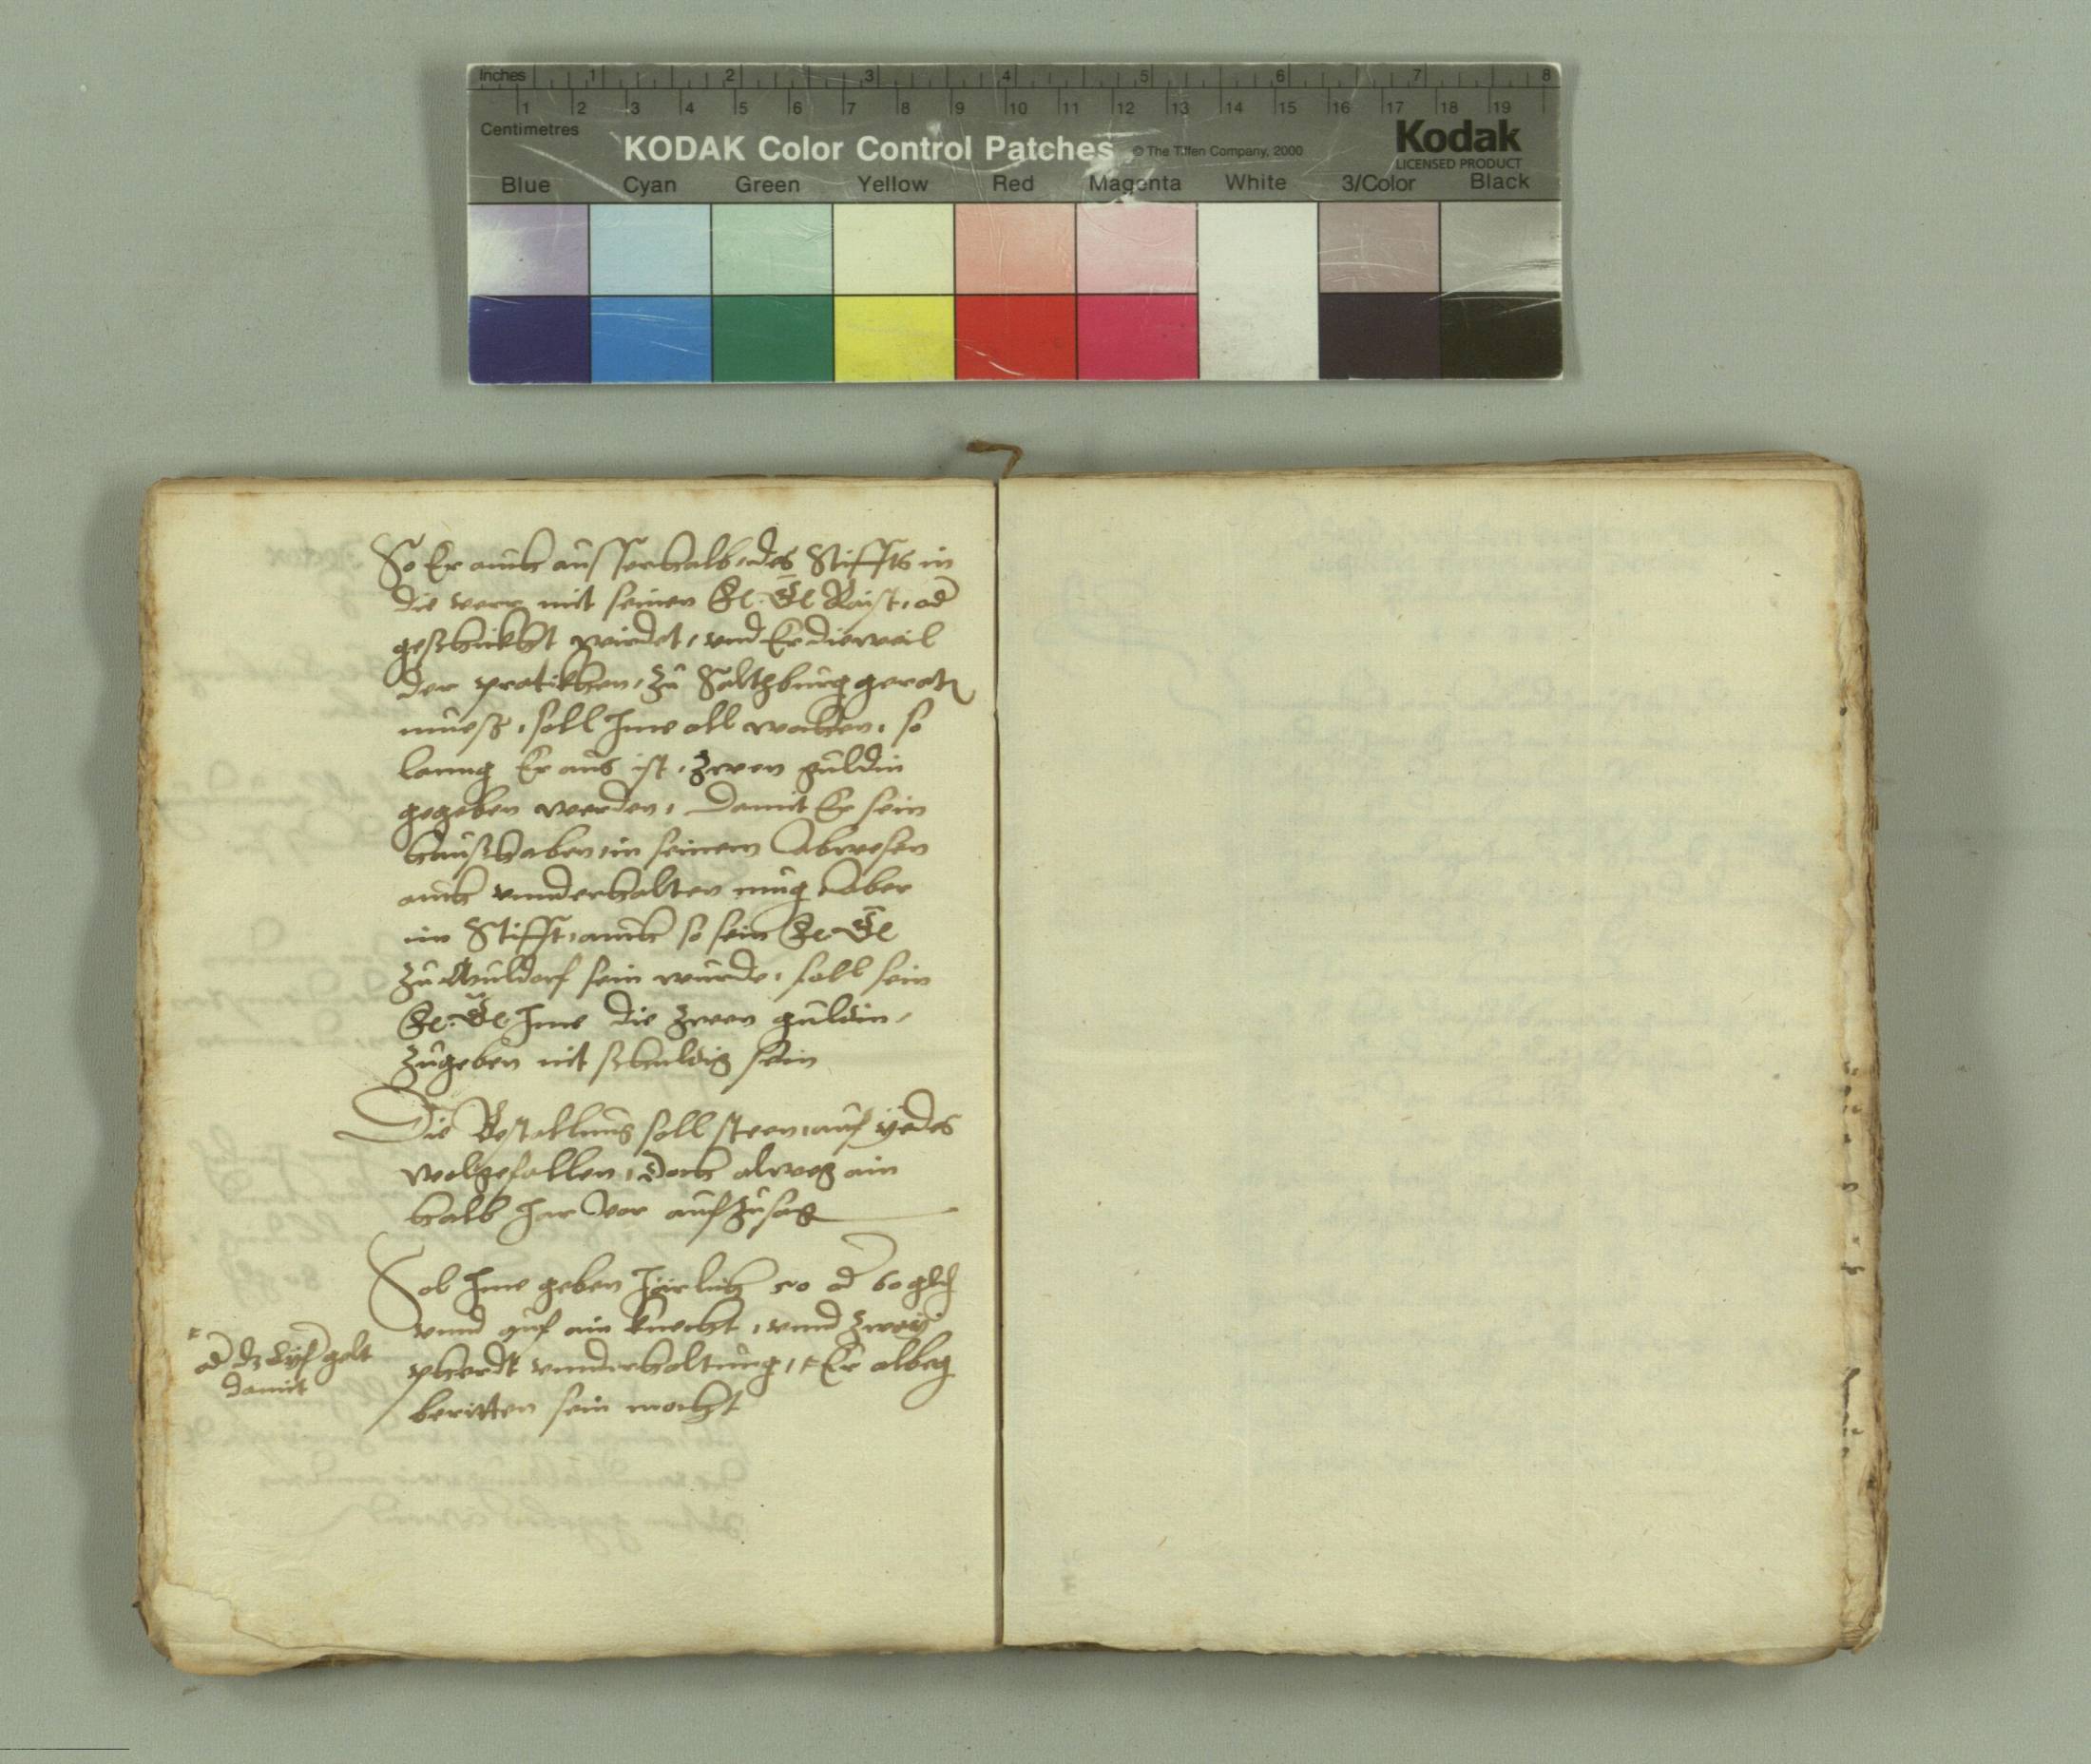 Inches 1 2 3 4 5 6 7 8
1 2 3 4 5 6 7 8 9 10 11 12 13 14 15 16 17 18 19
Centimetres
KODAK Color Control Patches © The Tiffen Company, 2000
Kodak
LICENSED PRODUCT
Blue Cyan Green Yellow Red Magenta White 3/Color Black
So Er auch ausserhalb des Stiffts in
die verr mit seinen Raist, od
geschickht wirdet, und Er dieweil
der pratikhen, zu Saltzburg geratn
muesz, soll Ime all wochen, so
lanng Er aus ist, zwen guldin
gegeben werden, Damit Er sein
hauszhaben in seinem Abwesen
auch vnnderhalten mug Aber
im Stifft, auch so sein
zu Muldorf sein wurde, soll sein
Ime die zwen guldin,
zugeben nit schuldig sein
Die Bestallung soll steen, auf yedes
wolgefallen, Doch alweg ain
halb Jar vor aufzusag
Sol Ime geben Järlich 50 od 60 gld
vnnd auf ain knecht, vnnd zway
pherdt vnnderhaltung, Er albeg
beritten sein mocht
od dz Lyf gelt
damit